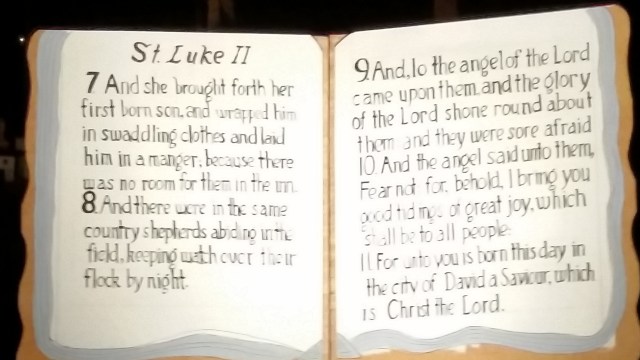 St. Luke II
7 And she brought forth her
first born son, and wrapped him
in swaddling clothes and laid
him in a manger; because there
was no room for them in the inn.
8 And there were in the same
country shepherds abiding in the
field, keeping watch over their
flock by night.
9 And, lo the angel of the Lord
came upon them, and the glory
of the Lord shone round about
them and they were sore afraid
10. And the angel said unto them,
Fear not for, behold, I bring you
good tidings of great joy, which
shall be to all people.
11. For unto you is born this day in
the city of David a Saviour, which
is Christ the Lord.